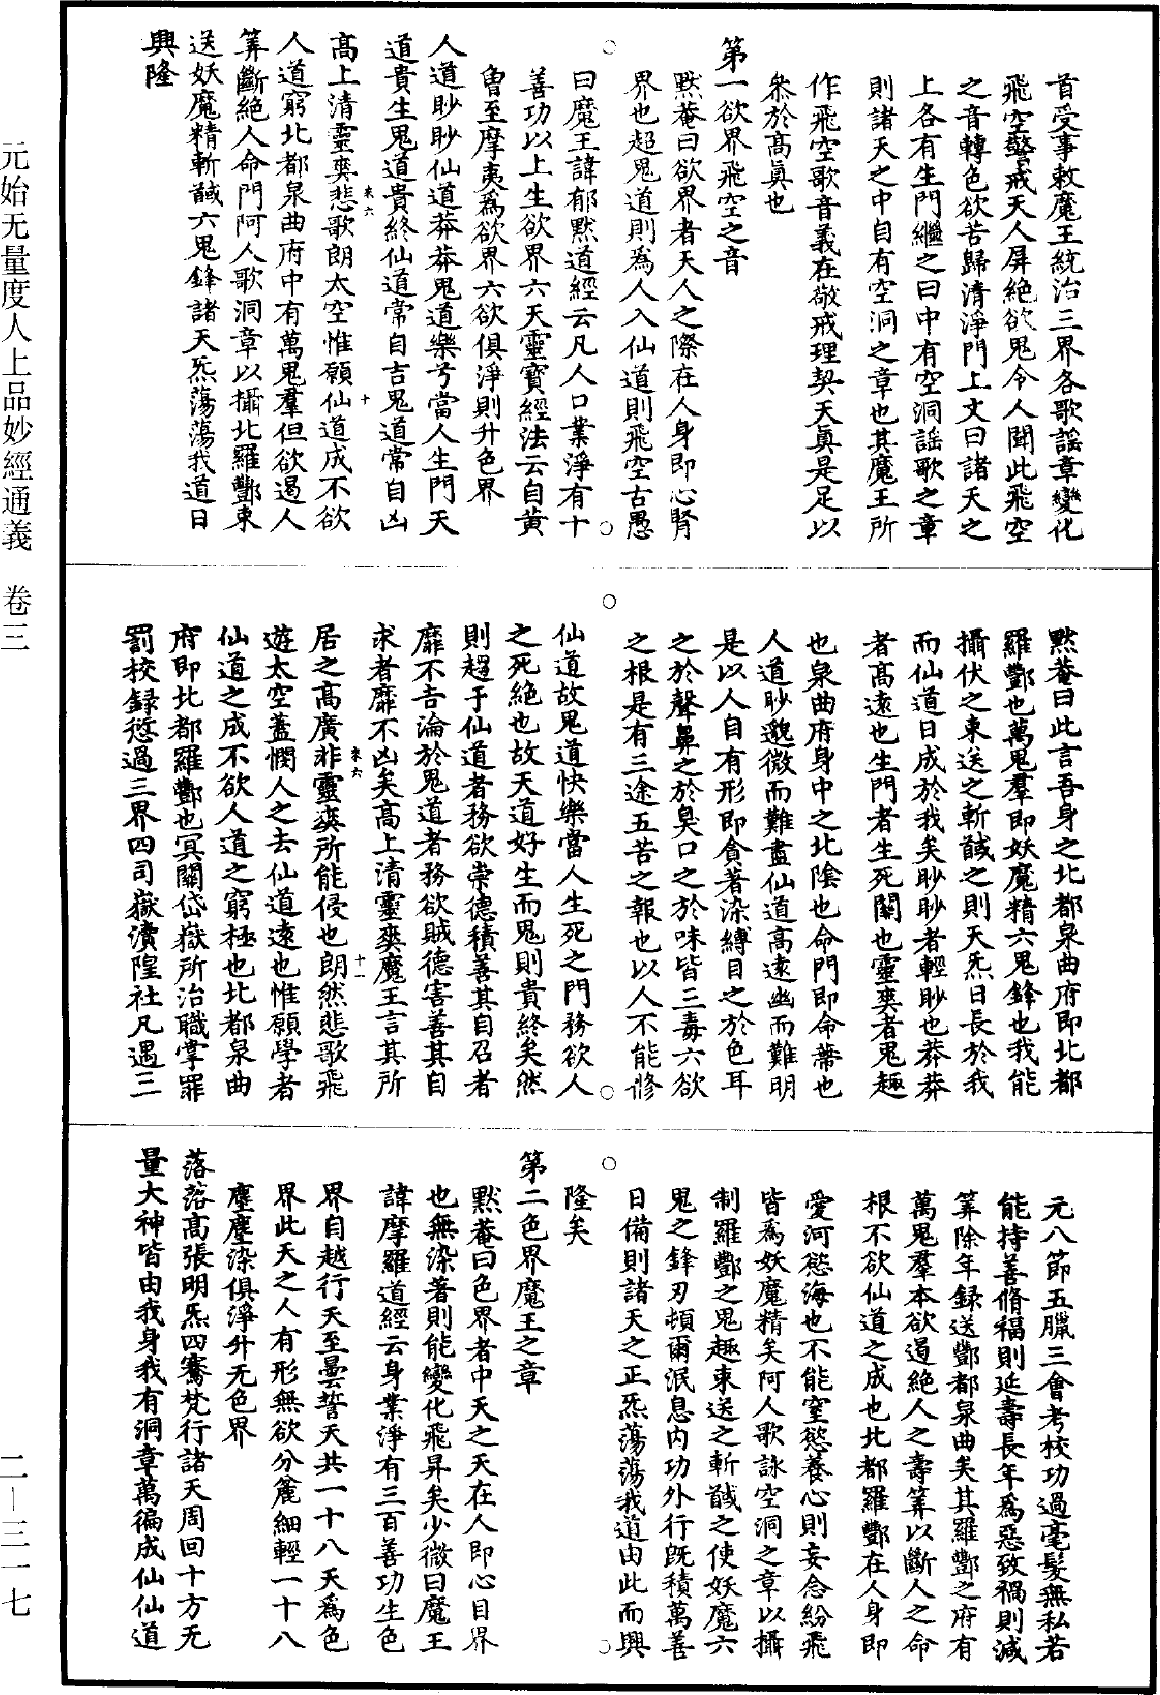 首受事敕魔王統治三界各歌謡章變化
飛空警戒天人屏絕欲鬼令人聞此飛空
之音轉色欲苦歸清淨門上文曰諸天之
上各有生門繼之曰中有空洞謡歌之章
則諸天之中自有空洞之章也其魔王所
作飛空歌音義在敬戒理契天真是足以
叅於高真也
第一欲界飛空之音
默菴曰欲界者天人之際在人身即心腎
界也超鬼道則為人入仙道則飛空古愚
曰魔王諱郁默道經云凡人口業淨有十
善功以上生欲界六天靈寶經法云自黄
曾至摩夷為欲界六欲俱淨則升色界
人道眇眇仙道莽莽鬼道樂兮當人生門天
道貴生鬼道貴終仙道常自吉鬼道常自凶
來六
十
高上清靈㷸悲歌朗太空惟願仙道成不欲
人道窮北都泉曲府中有萬鬼羣但欲遏人
筭斷絕人命門阿人歌洞章以攝北羅酆束
送妖魔精斬馘六鬼鋒諸天炁蕩蕩我道日
興隆
默菴曰此言吾身之北都泉曲府即北都
羅酆也萬鬼羣即妖魔精六鬼鋒也我能
攝伏之束送之斬馘之則天炁日長於我
而仙道日成於我矣眇眇者輕眇也莽莽
者高遠也生門者生死關也靈㷸者鬼趣
也泉曲府身中之北陰也命門即命蔕也
人道眇邈微而難盡仙道高遠幽而難明
是以人自有形即貪著染縛目之於色耳
之於聲鼻之於臭口之於味皆三毒六欲
之根是有三途五苦之報也以人不能修
仙道故鬼道快樂當人生死之門務欲人
之死絕也故天道好生而鬼則貴終矣然
則趨于仙道者務欲崇德積善其自召者
靡不吉淪於鬼道者務欲賊德害善其自
求者靡不凶矣高上清靈㷸魔王言其所
來六
十一
居之高廣非靈㷸所能侵也朗然悲歌飛
遊太空蓋憫人之去仙道遠也惟願學者
仙道之成不欲人道之窮極也北都泉曲
府即北都羅酆也冥關岱嶽所治職掌罪
罰校録愆過三界四司嶽瀆隍社凡遇三
元八節五臘三會考校功過毫髮無私若
能持善脩福則延壽長年為惡致禍則減
筭除年録送酆都泉曲矣其羅酆之府有
萬鬼羣本欲遏絕人之壽筭以斷人之命
根不欲仙道之成也北都羅酆在人身即
愛河慾海也不能窒慾養心則妄念紛飛
皆為妖魔精矣阿人歌詠空洞之章以攝
制羅酆之鬼趣束送之斬馘之使妖魔六
鬼之鋒刃頓爾泯息内功外行旣積萬善
日備則諸天之正炁蕩蕩我道由此而興
隆矣
第二色界魔王之章
默菴曰色界者中天之天在人即心目界
也無染著則能變化飛昇矣少微曰魔王
諱摩羅道經云身業淨有三百善功生色
界自越行天至曇誓天共一十八天為色
界此天之人有形無欲分麄細輕一十八
塵塵染俱淨升无色界
落落高張明炁四騫梵行諸天周回十方无
量大神皆由我身我有洞章萬徧成仙仙道
元始无量度人上品妙經通義　卷三
二—三一七